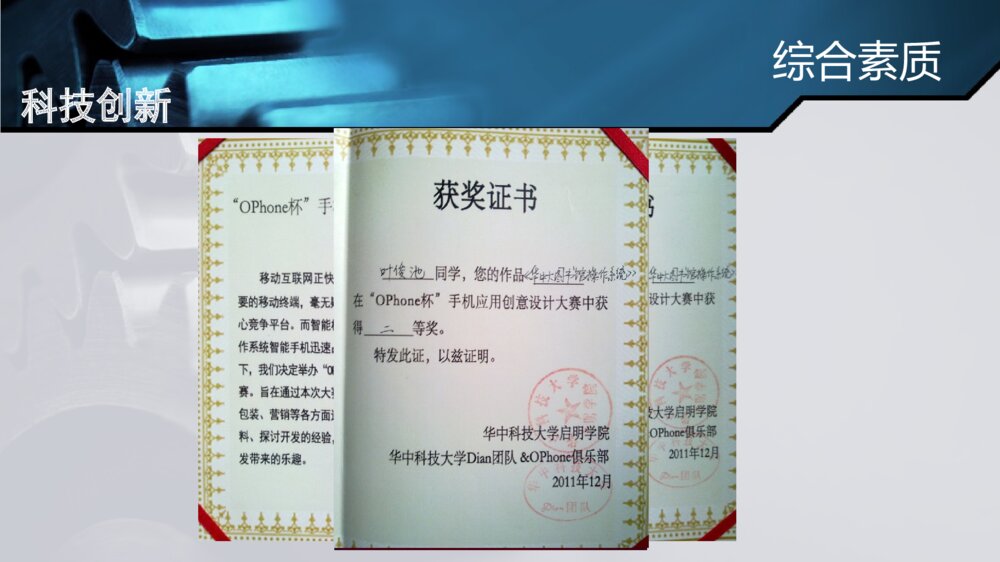 综合素质
科技创新
“OPhone杯”手
移动互联网正快
要的移动终端，毫无
心竞争平台。而智能
作系统智能手机迅速
下，我们决定举办“O
赛。旨在通过本次大赛
包装、营销等各方面
料、探讨开发的经验，
发带来的乐趣。
获奖证书
叶俊池同学，您的作品《华中大图书馆操作系统》
在“OPhone杯”手机应用创意设计大赛中获
得 二 等奖。
特发此证，以兹证明。
华中科技大学启明学院
华中科技大学Dian团队 &OPhone俱乐部
2011年12月
Dian团队
书
华中大图书馆操作系统》
设计大赛中获
技大学启明学院
OPhone俱乐部
2011年12月
Dian团队